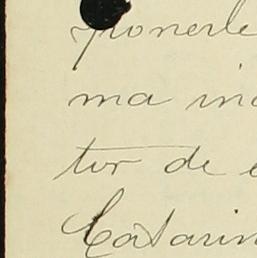 ponerle
ma in
tor de
Catarin